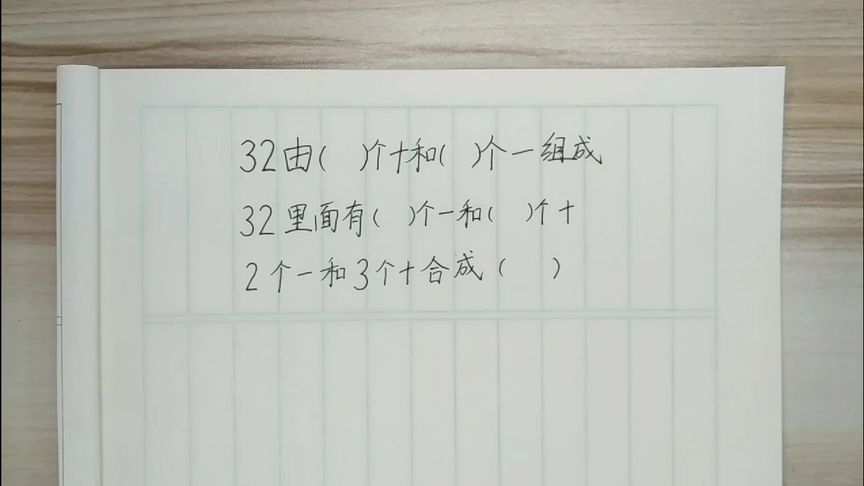 32由( )个十和( )个一组成
32里面有( )个一和( )个十
2个一和3个十合成( )